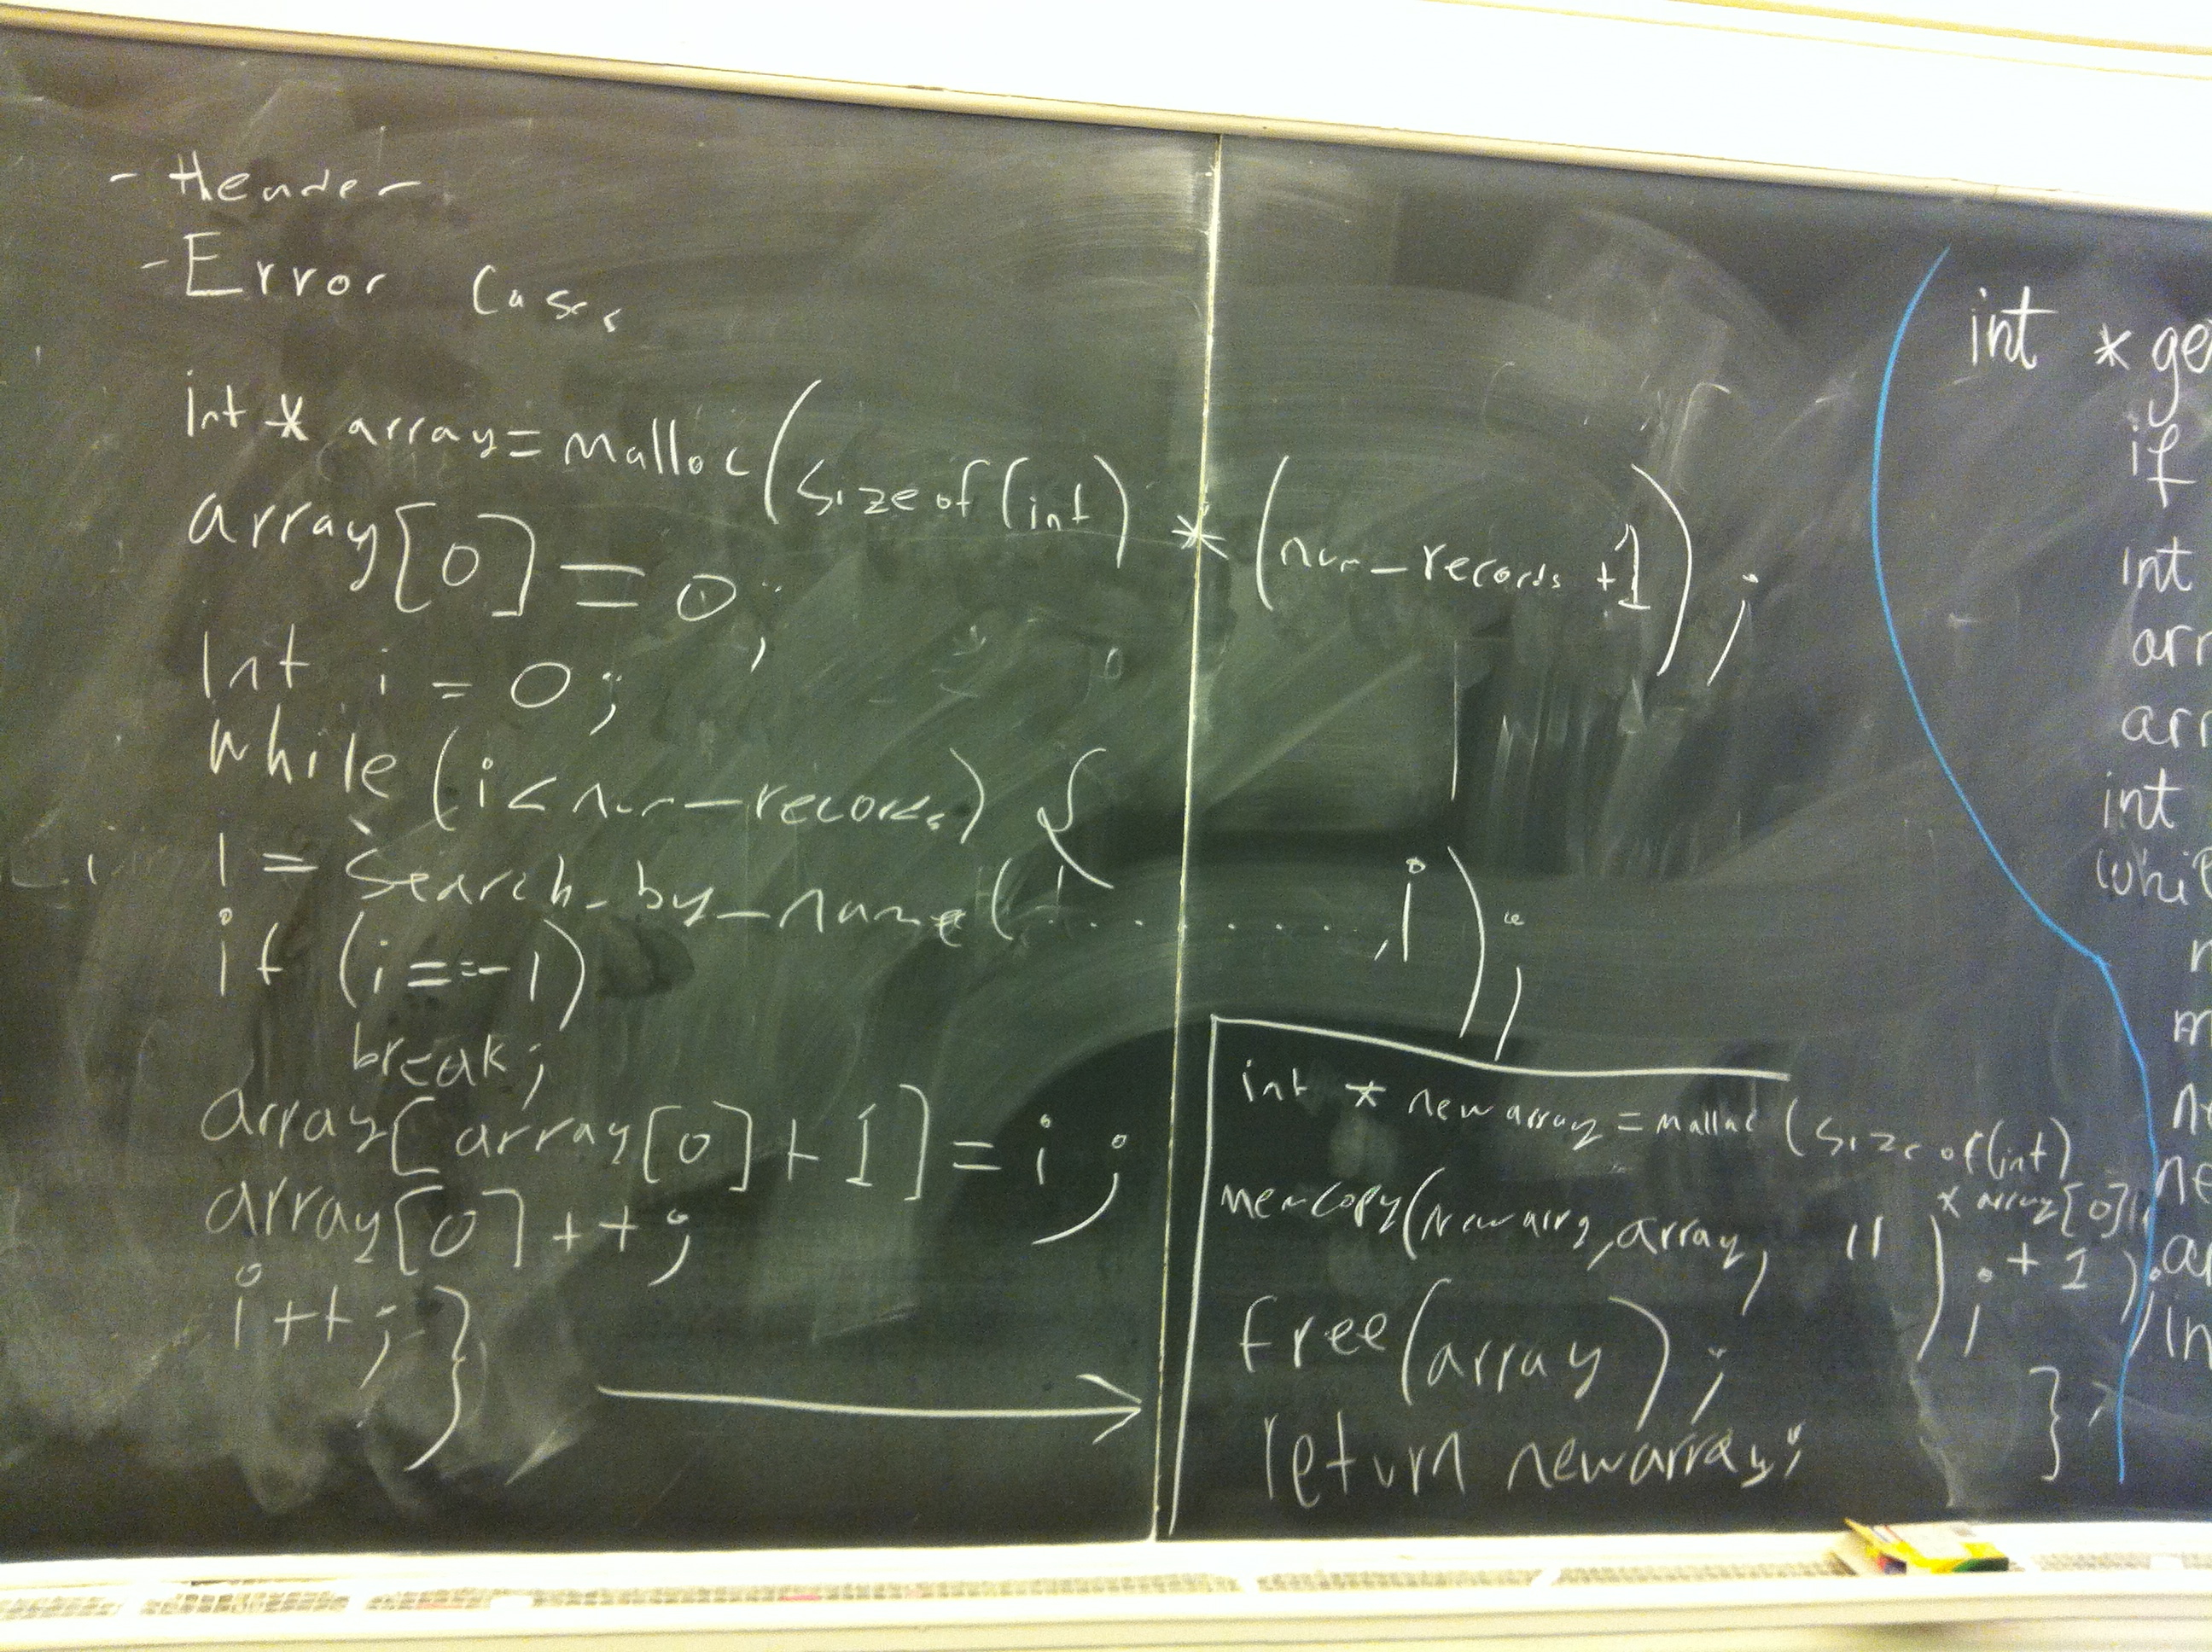 - Header
- Error Cases
int * array = malloc(sizeof(int) * (num_records +1);
array[0] = 0;
int i = 0;
while (i < num_records) {
i = search_by_name( . . . . . . . . , i);
if (i == -1)
break;
array[array[0] + 1] = i;
array[0]++;
i++; }
int * newarray = malloc (sizeof(int)
* array[0]
+ 1);
memcopy(newarry, array, " );
free(array);
return newarray;
}
int * ge
if
int
arr
arr
int
whil
n
m
ne
ar
in